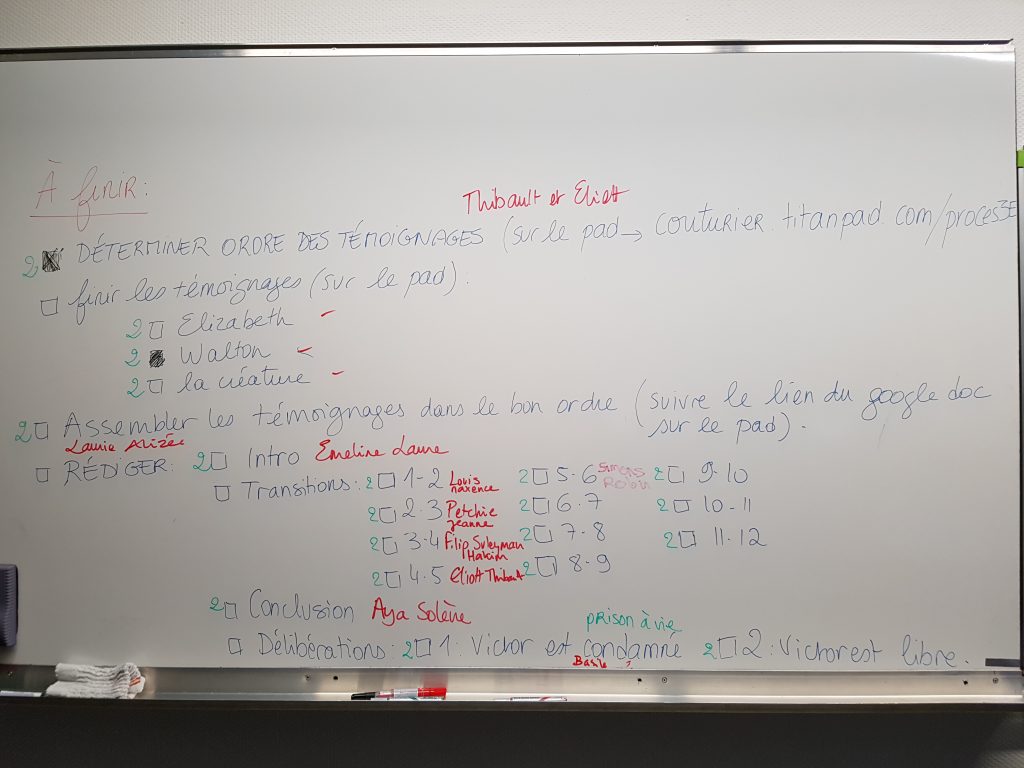 À finir:
Thibault et Eliott
2 DÉTERMINER ORDRE DES TÉMOIGNAGES (sur le pad → couturier.titanpad.com/proces3E
finir les témoignages (sur le pad):
2 Elizabeth
2 Walton
2 la créature
2 Assembler les témoignages dans le bon ordre (suivre le lien du google doc
sur le pad).
Laurie Alizée
RÉDIGER: 2 Intro Emeline Laure
Transitions: 2 1-2 Louis maxence 2 5-6 2 9-10
2 2-3 Petchie Jeanne 2 6-7 2 10-11
2 3-4 Filip Suleyman Hakim 2 7-8 2 11-12
2 4-5 Eliott Thibault 2 8-9
2 Conclusion Aya Solène
prison à vie
Délibérations: 2 1: Victor est condamné 2 2: Victor est libre.
Basile